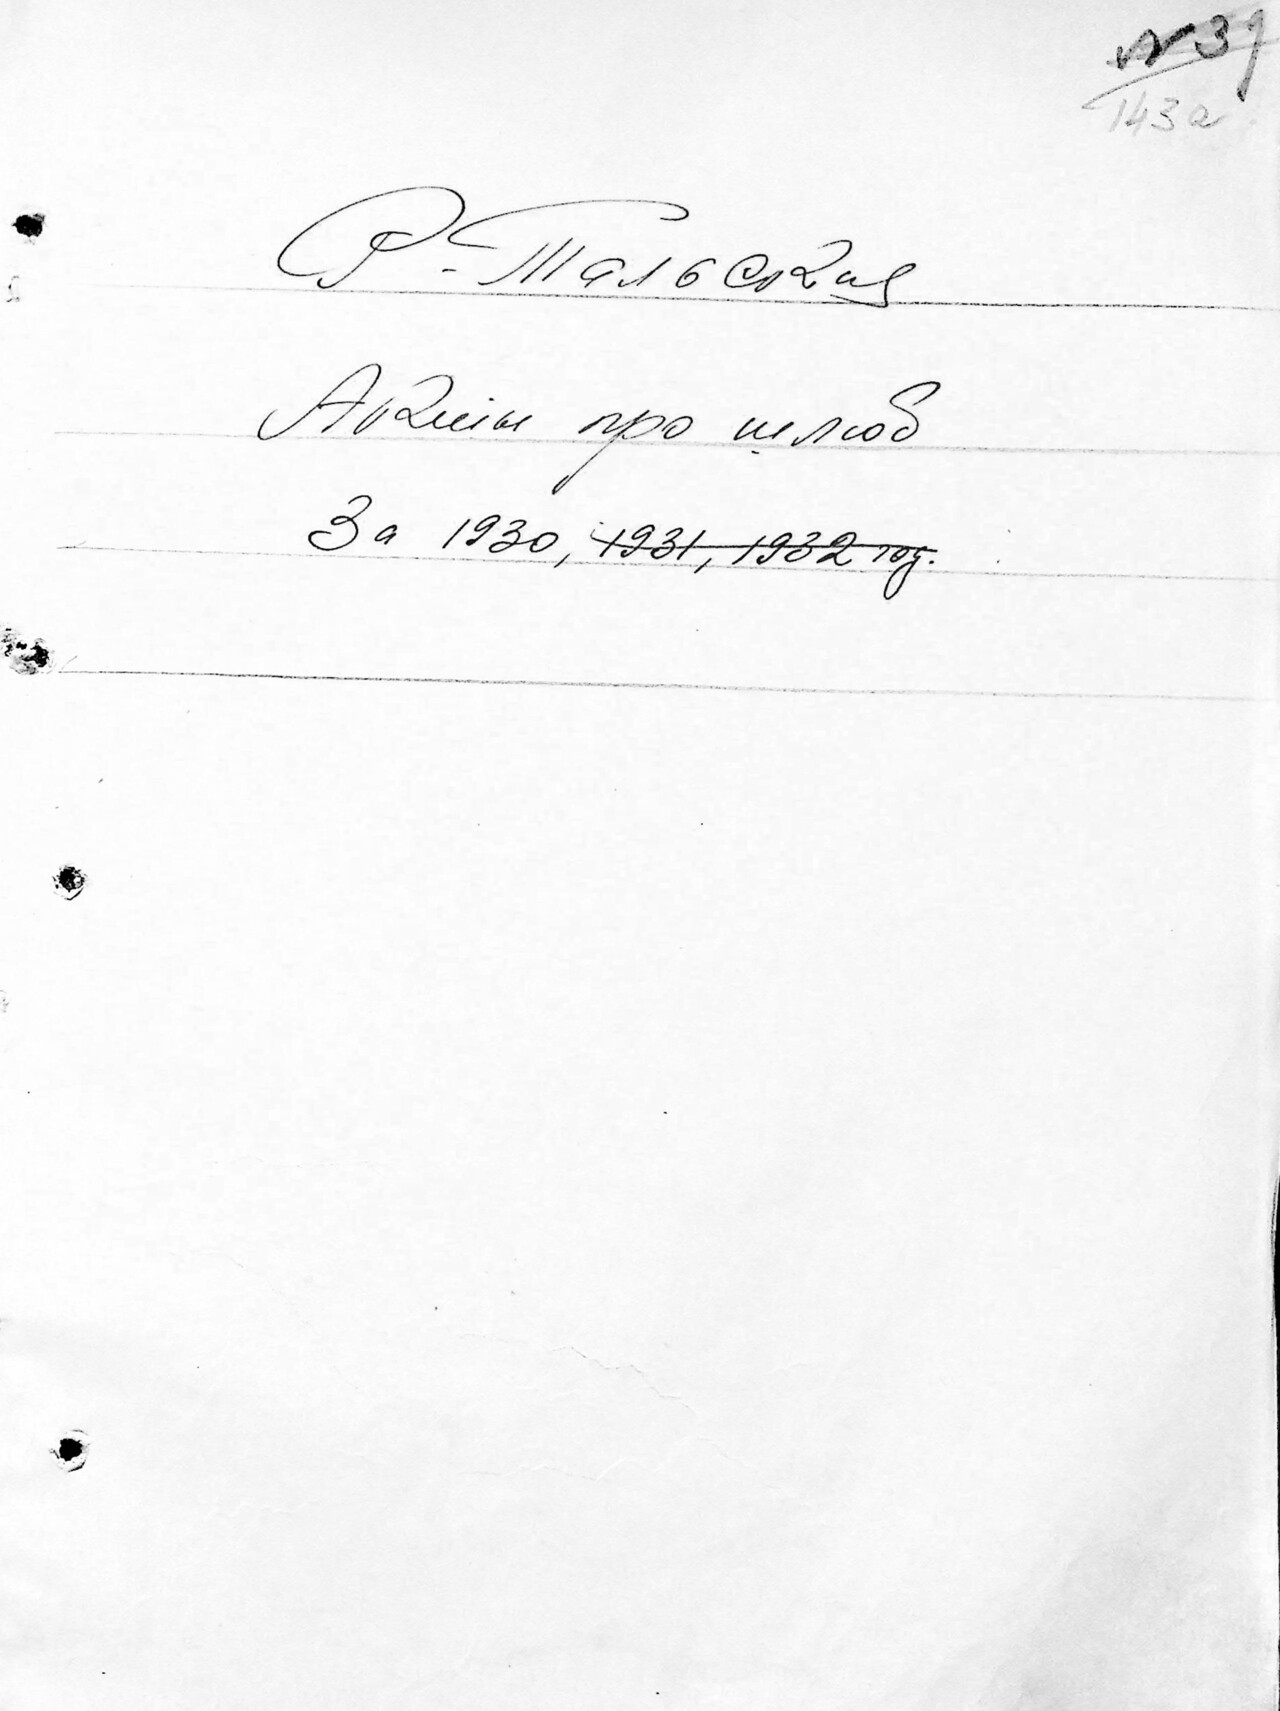 № 39
143а
Р-Тальская
Акты про шлюб
За 1930, 1931, 1932 год.